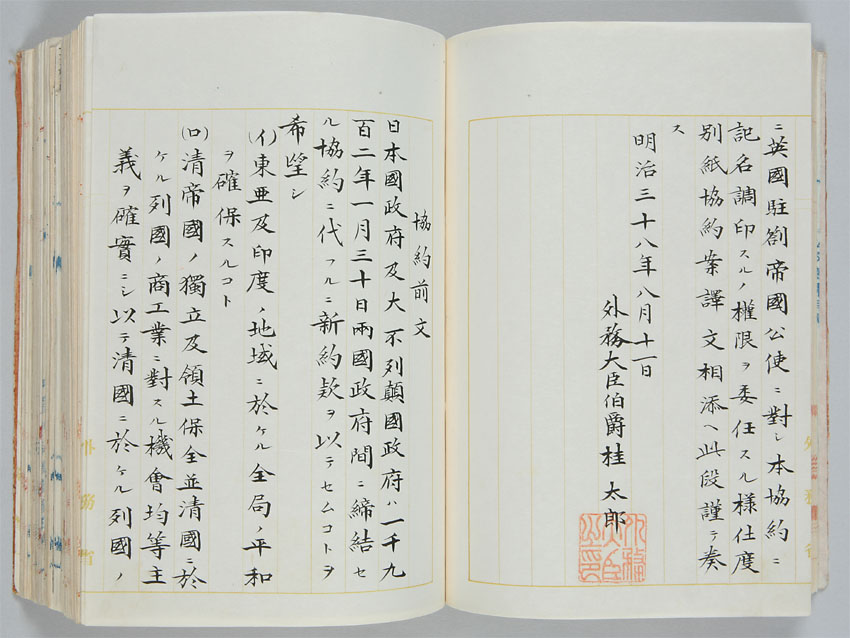 ニ英國駐劄帝國公使ニ對シ本協約ニ
記名調印スルノ權限ヲ委任スル様仕度
別紙協約案譯文相添ヘ此段謹テ奏
ス
明治三十八年八月十一日
外務大臣伯爵桂太郎
外務大臣之印
協約前文
日本國政府及大不列顛國政府ハ一千九
百二年一月三十日兩國政府間ニ締結セ
ル協約ニ代フルニ新約欵ヲ以テセムコトヲ
希望シ
(イ)東亜及印度ノ地域ニ於ケル全局ノ平和
ヲ確保スルコト
(ロ)清帝國ノ獨立及領土保全並清國ニ於
ケル列國ノ商工業ニ對スル機會均等主
義ヲ確實ニシ以テ清國ニ於ケル列國ノ
外務省